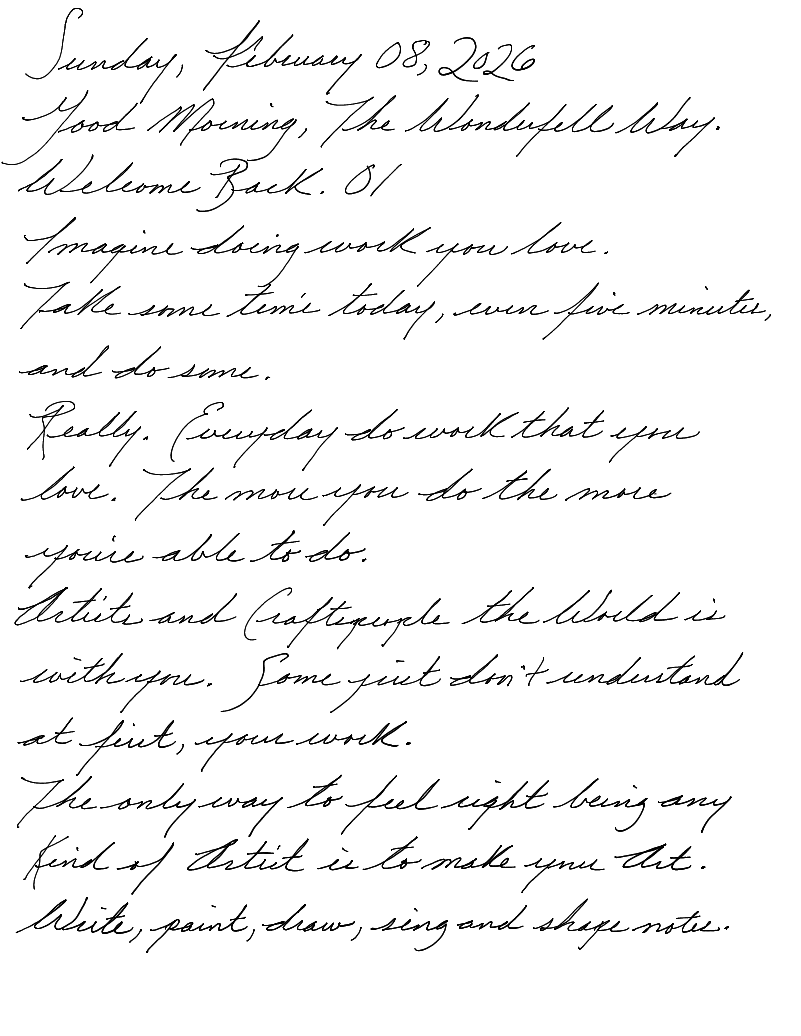 Sunday, February 08, 2026
Good Morning, The Wonderfell Way.
Welcome Back. 01
Imagine doing work you love.
Take some time today, even five minutes,
and do some.
Really. Everyday do work that you
love. The more you do the more
you're able to do.
Artists and Craftspeople the World is
with you. Some just don't understand
at first, your work.
The only way to feel right being any
Kind of Artist is to make your Art.
Write, paint, draw, sing and shape notes.